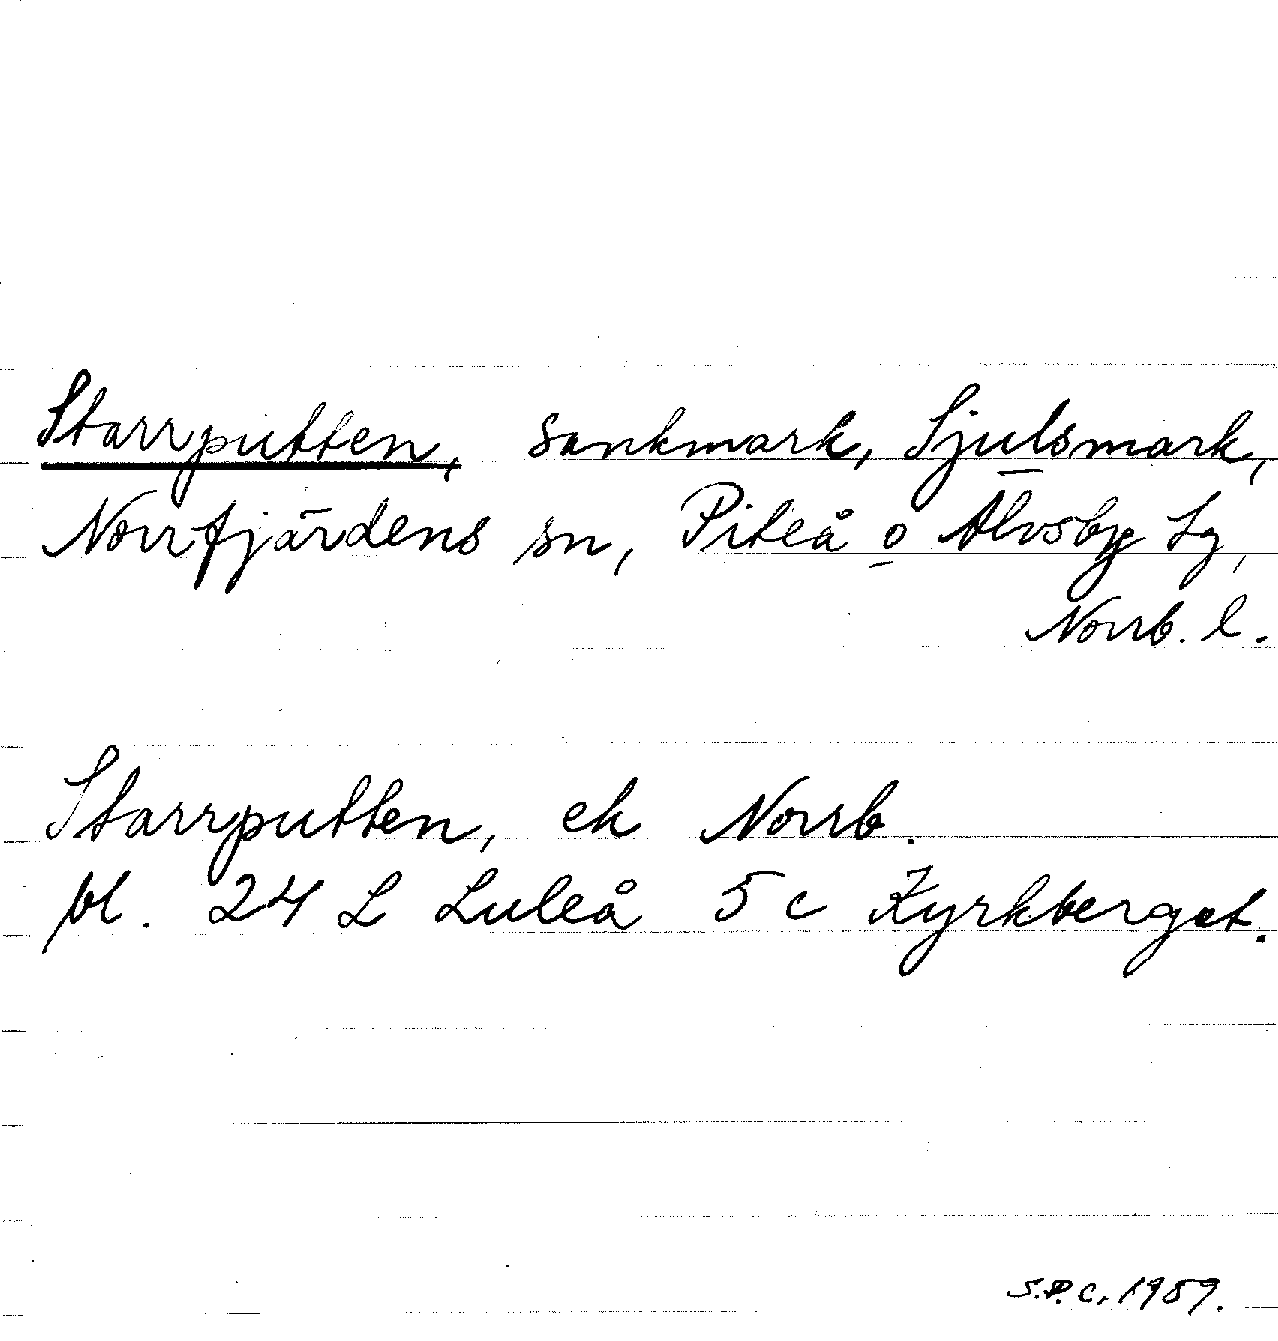 Starrputten, sankmark, Sjulsmark,
Norrfjärdens sn, Piteå o Älvsby tg,
Norrb. l.
Starrputten, ek Norrb.
bl. 24 L Luleå 5 c Kyrkberget.
S.P.C. 1989.